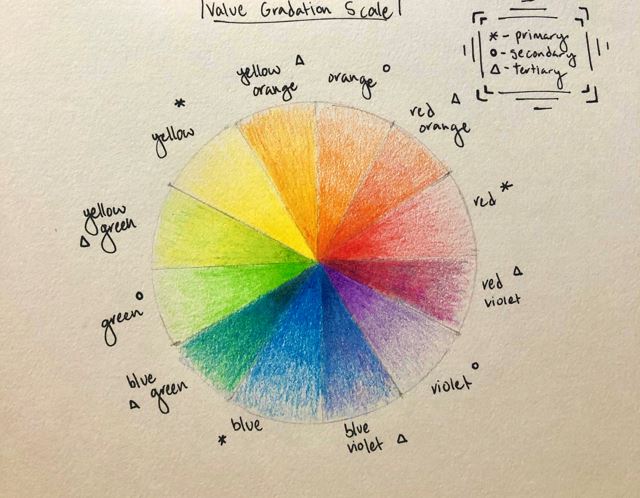 Value Gradation Scale
* - primary
o - secondary
Δ - tertiary
yellow Δ
orange
orange o
red Δ
orange
red *
red Δ
violet
violet o
blue
violet Δ
* blue
blue
Δ green
green o
yellow
Δ green
*
yellow